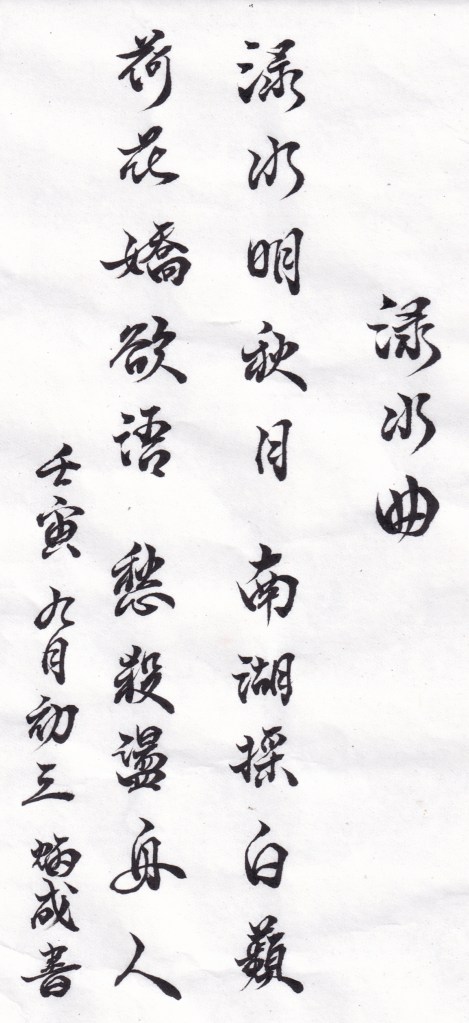 渌水曲
渌水明秋月 南湖採白蘋
荷花嬌欲語 愁殺盪舟人
壬寅 九月初三 炳成書